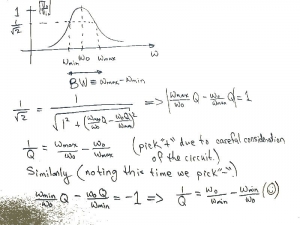 1
1/√2
ω
ωmin ω0 ωmax
BW ≡ ωmax - ωmin
1/√2 = 1/√(1² + (ωmax/ω0 Q - ω0/ωmax Q)²) ==> |ωmax/ω0 Q - ω0/ωmax Q| = 1
1/Q = ωmax/ω0 - ω0/ωmax (pick "+" due to careful consideration
of the circuit.)
Similarly (noting this time we pick "-")
ωmin/ω0 Q - ω0 Q/ωmin = -1 => 1/Q = ω0/ωmin - ωmin/ω0 (☺)